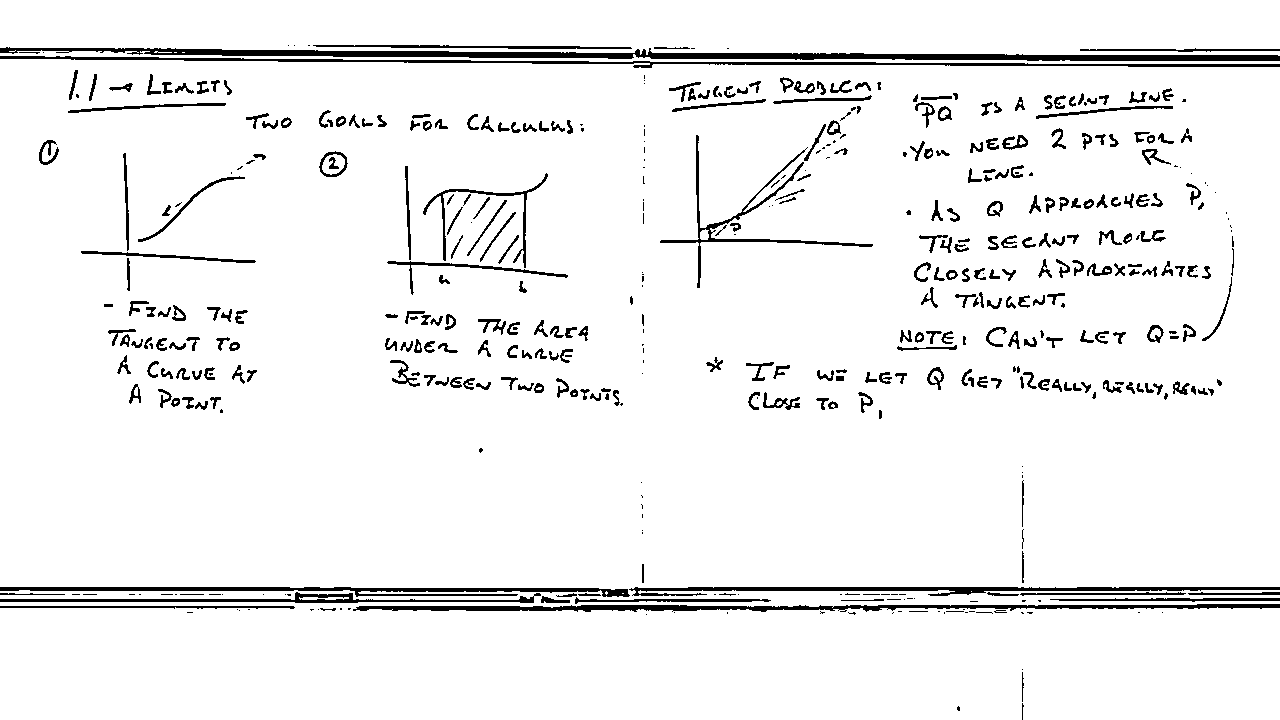 1.1 → LIMITS
TWO GOALS FOR CALCULUS:
①
②
a b
- FIND THE
TANGENT TO
A CURVE AT
A POINT.
- FIND THE AREA
UNDER A CURVE
BETWEEN TWO POINTS.
TANGENT PROBLEM:
Q
P
"PQ" IS A SECANT LINE.
• YOU NEED 2 PTS FOR A
LINE.
• AS Q APPROACHES P,
THE SECANT MORE
CLOSELY APPROXIMATES
A TANGENT.
NOTE: CAN'T LET Q=P
* IF WE LET Q GET "REALLY, REALLY, REALLY"
CLOSE TO P,